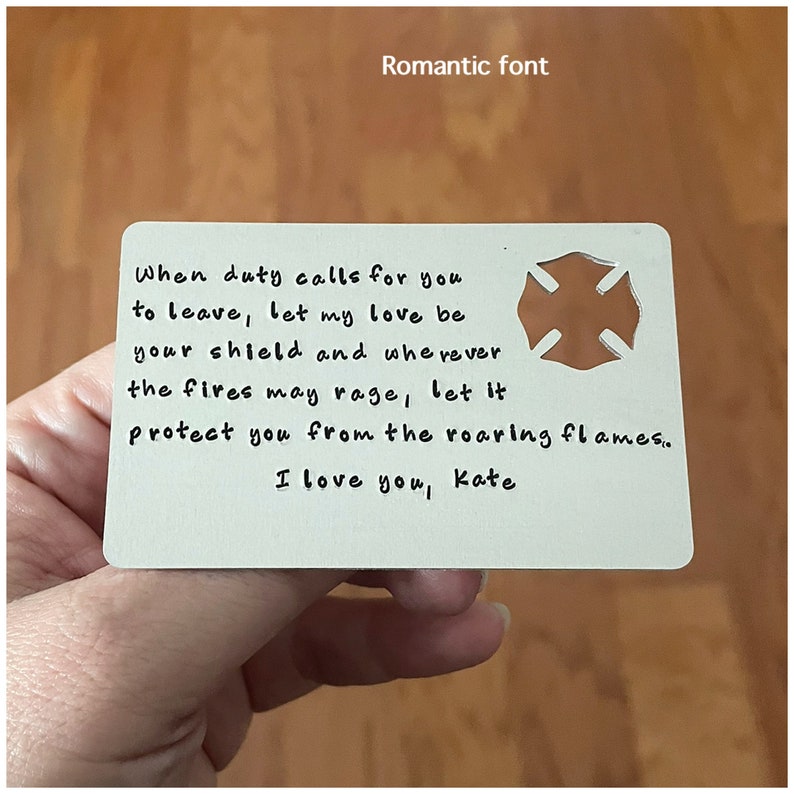 Romantic font
When duty calls for you
to leave, let my love be
your shield and wherever
the fires may rage, let it
protect you from the roaring flames.
I love you, Kate